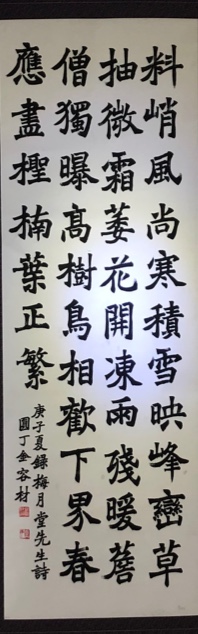 料峭風尚寒積雪映峰巒草
抽微霜萎花開凍雨殘暖蒼
僧獨曝高樹鳥相歡下界春
應盡檉楠葉正繁
庚子夏錄梅月堂先生詩
圃丁金容材